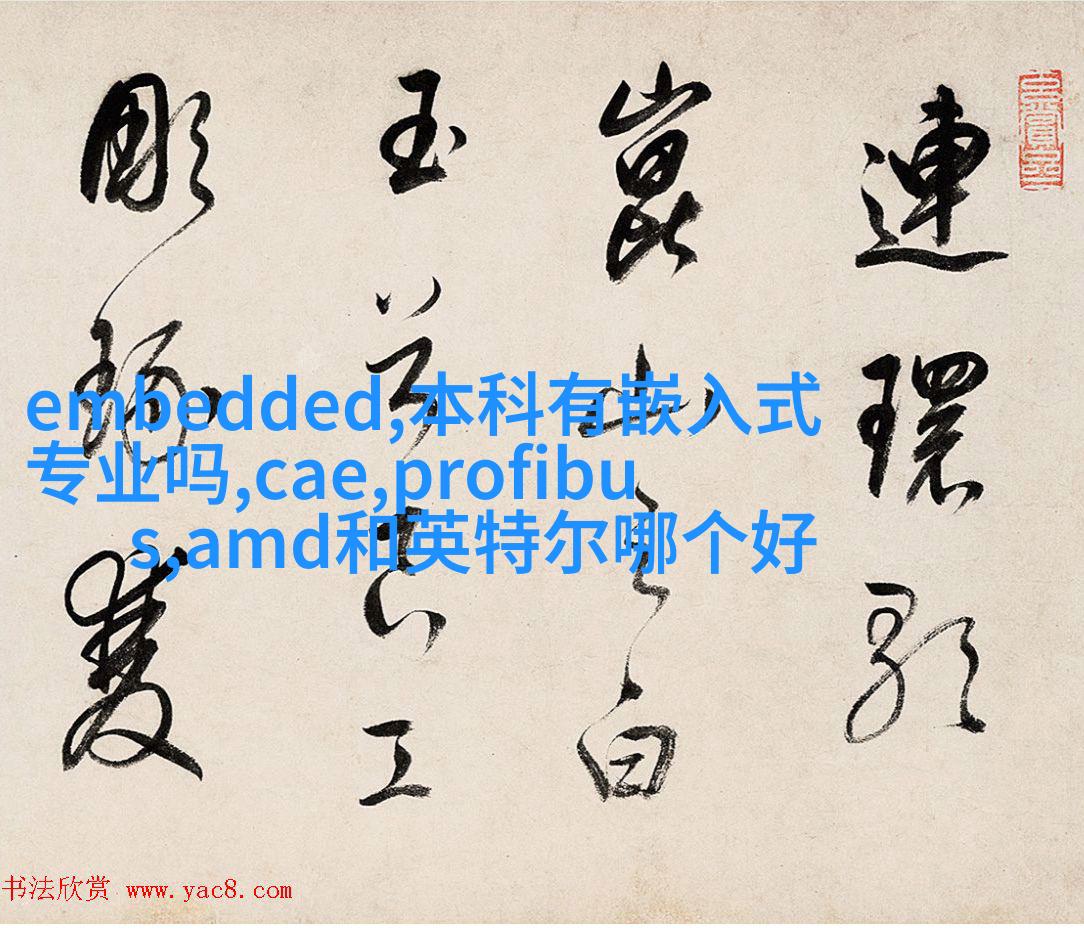 連環歌
崑山之白
玉兮工
彫琢雙
embedded,本科有嵌入式
专业吗,cae,profibu
s,amd和英特尔哪个好
书法欣赏 www.yac8.com